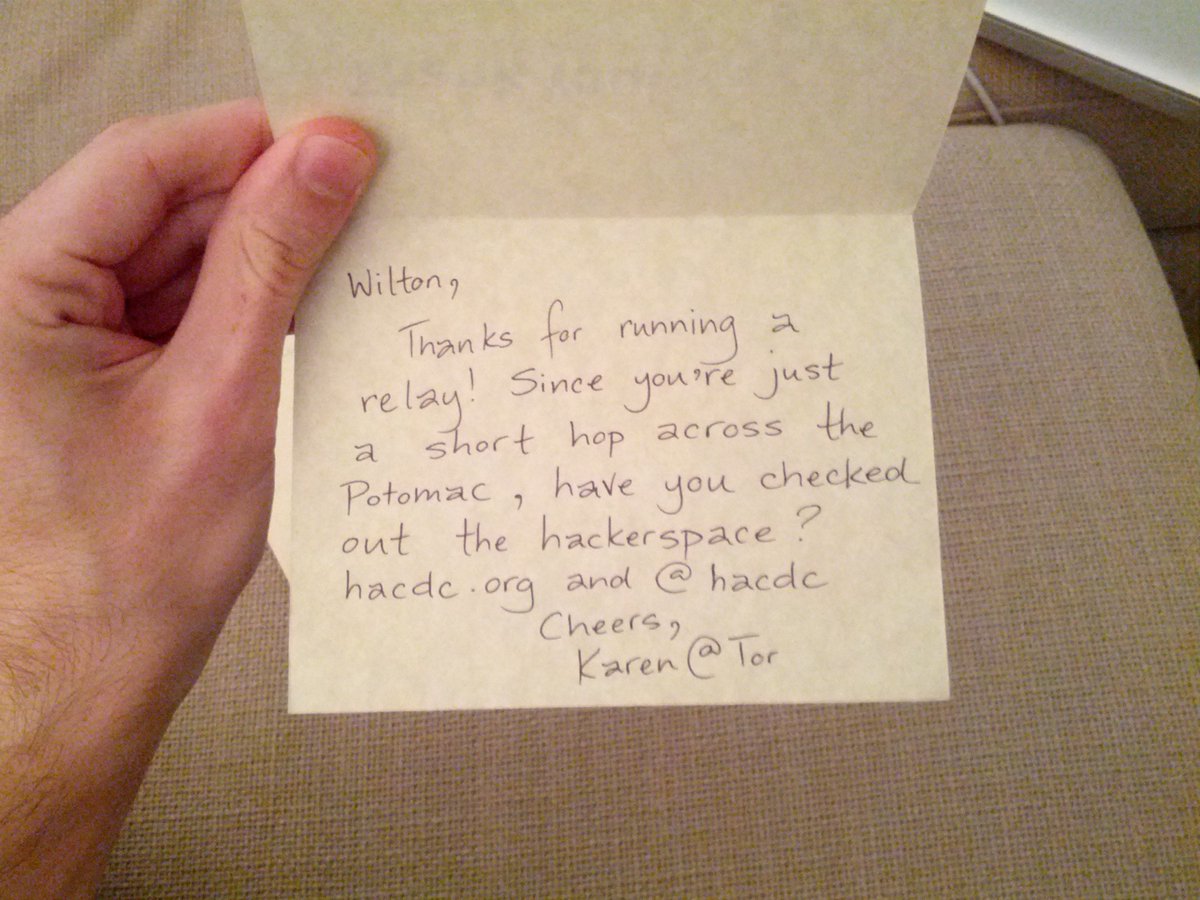 Wilton,
Thanks for running a
relay! Since you're just
a short hop across the
Potomac, have you checked
out the hackerspace?
hacdc.org and @hacdc
Cheers,
Karen@Tor